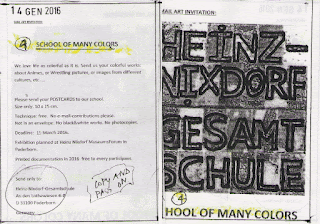 14 GEN 2016
MAIL ART INVITATION:
4 SCHOOL OF MANY COLORS
We love life as colorful as it is. Send us your colorful works
about Animes, or Wrestling pictures, or images from different
cultures, etc...
Please send your POSTCARDS to our school.
Size only: 10 x 15 cm.
Technique: free. No e-mail contributions please.
Not in an envelope. No black&white works. No photocopies.
Deadline: 11 March 2016.
Exhibition planned at Heinz Nixdorf MuseumsForum in
Paderborn.
Printed documentation in 2016 free to every participant.
Send only to:
Heinz-Nixdorf-Gesamtschule
An der Lothewiese 6-8
D 33100 Paderborn
GERMANY
COPY AND
PASS ON!
MAIL ART INVITATION:
HEINZ-
NIXDORF
GESAMT
SCHULE
4
HOOL OF MANY COLORS